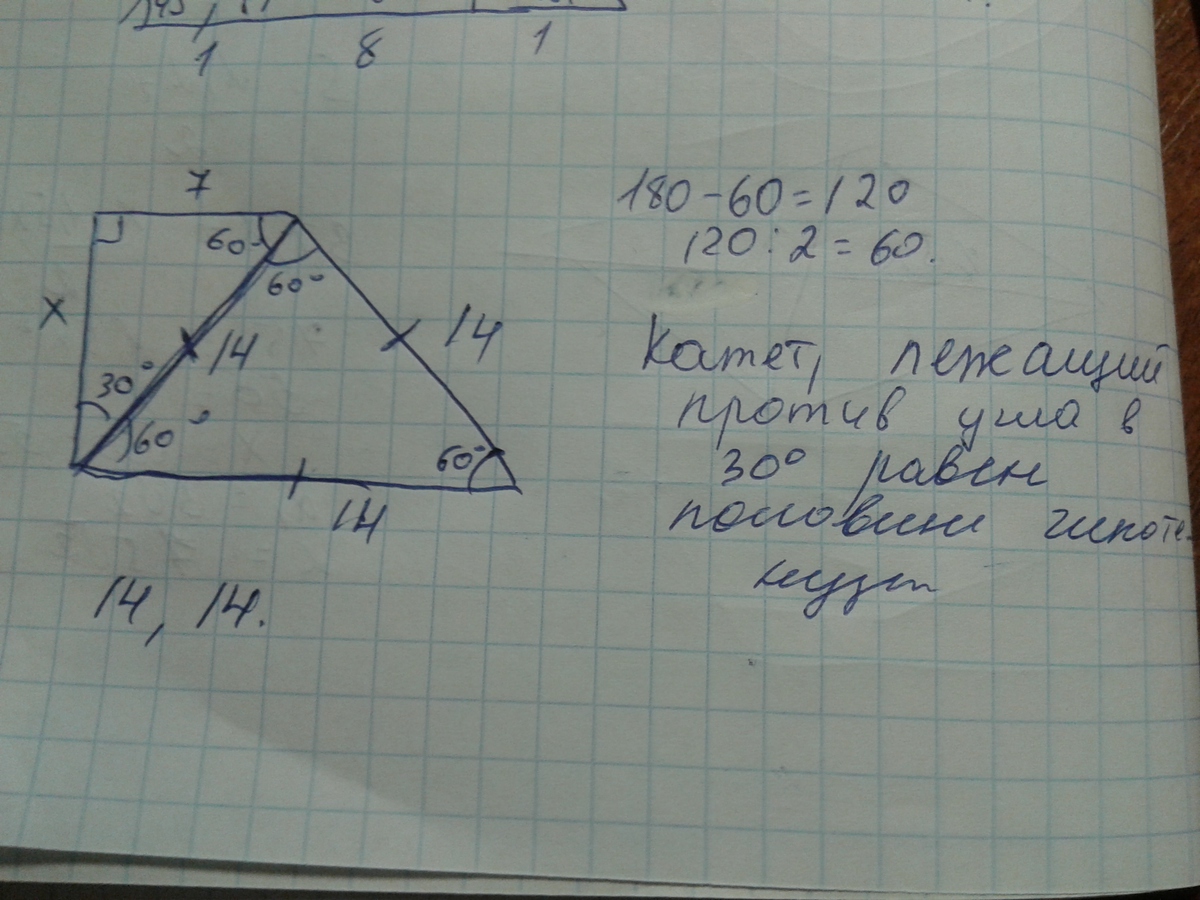 1 8 1
7
180-60=120
60°
120:2=60.
60°
x
14
14
Катет, лежащий
30°
против угла в
60°
60°
30° равен
14
половине гипоте-
нузы
14, 14.